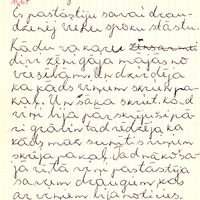 Es pastāstīju savai drau-
dzenei vienu spoku stāstu.
Kādu vakaru
divi zēni gāja mājās no
un dzirdēja
ka kāds viņiem
Un sāka skriet. Kad
viņi bija paskrējuši pā-
ri grāvim tad redzēja, ka
kāds mazs sunītis viņiem
skrēja pakaļ. Tad nākoša-
jā rītā viņi pastāstīja
saviem draugiem, kas
ar viņiem bija noticies.